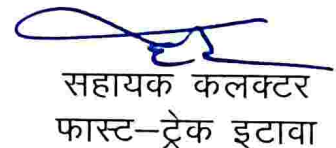 सहायक कलक्टर
फास्ट–ट्रेक इटावा